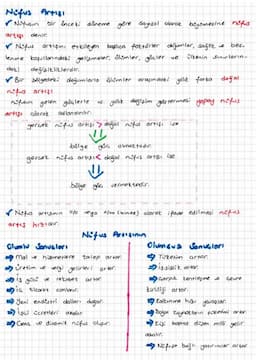 Nüfus Artışı
✓ Nüfusun bir önceki döneme göre sayısal olarak büyümesine nüfus
artışı denir.
✓ Nüfus artışını etkileyen başlıca faktörler doğumlar, sağlık ve bes
lenme koşullarındaki gelişmeler, ölümler, göçler ve ülkenin sınırların
daki değişikliklerdir.
✓ Bir bölgedeki doğumlarla ölümler arasındaki yıllık farka doğal
nüfus artışı
nüfusun gelen göçlerle yıllık değişim göstermesi gerçek nüfus
artışı olarak adlandırılır.
gerçek nüfus artışı > doğal nüfus artışı ise
bölge göç almaktadır.
gerçek nüfus artışı < doğal nüfus artışı ise
bölge göç vermektedir.
✓ Nüfus artışının % veya ‰ (binde) olarak ifade edilmesi nüfus
artış hızıdır.
Nüfus Artışının
Olumlu Sonuçları
Mal ve hizmetlere talep artar.
Üretim ve vergi gelirleri artar.
İş gücü ve rekabet artar.
İç ticaret canlanır.
Yeni endüstri dalları doğar.
İşçi ücretleri azalır.
Genç ve dinamik nüfus oluşur.
Olumsuz Sonuçları
Tüketim artar.
İşsizlik artar.
Çarpık kentleşme ve çevre
kirliliği artar.
Kalkınma hızı yavaşlar.
Doğal kaynakların tüketimi artar.
Kişi başına düşen milli gelir
azalır.
Nüfusa bağlı yatırımlar artar.